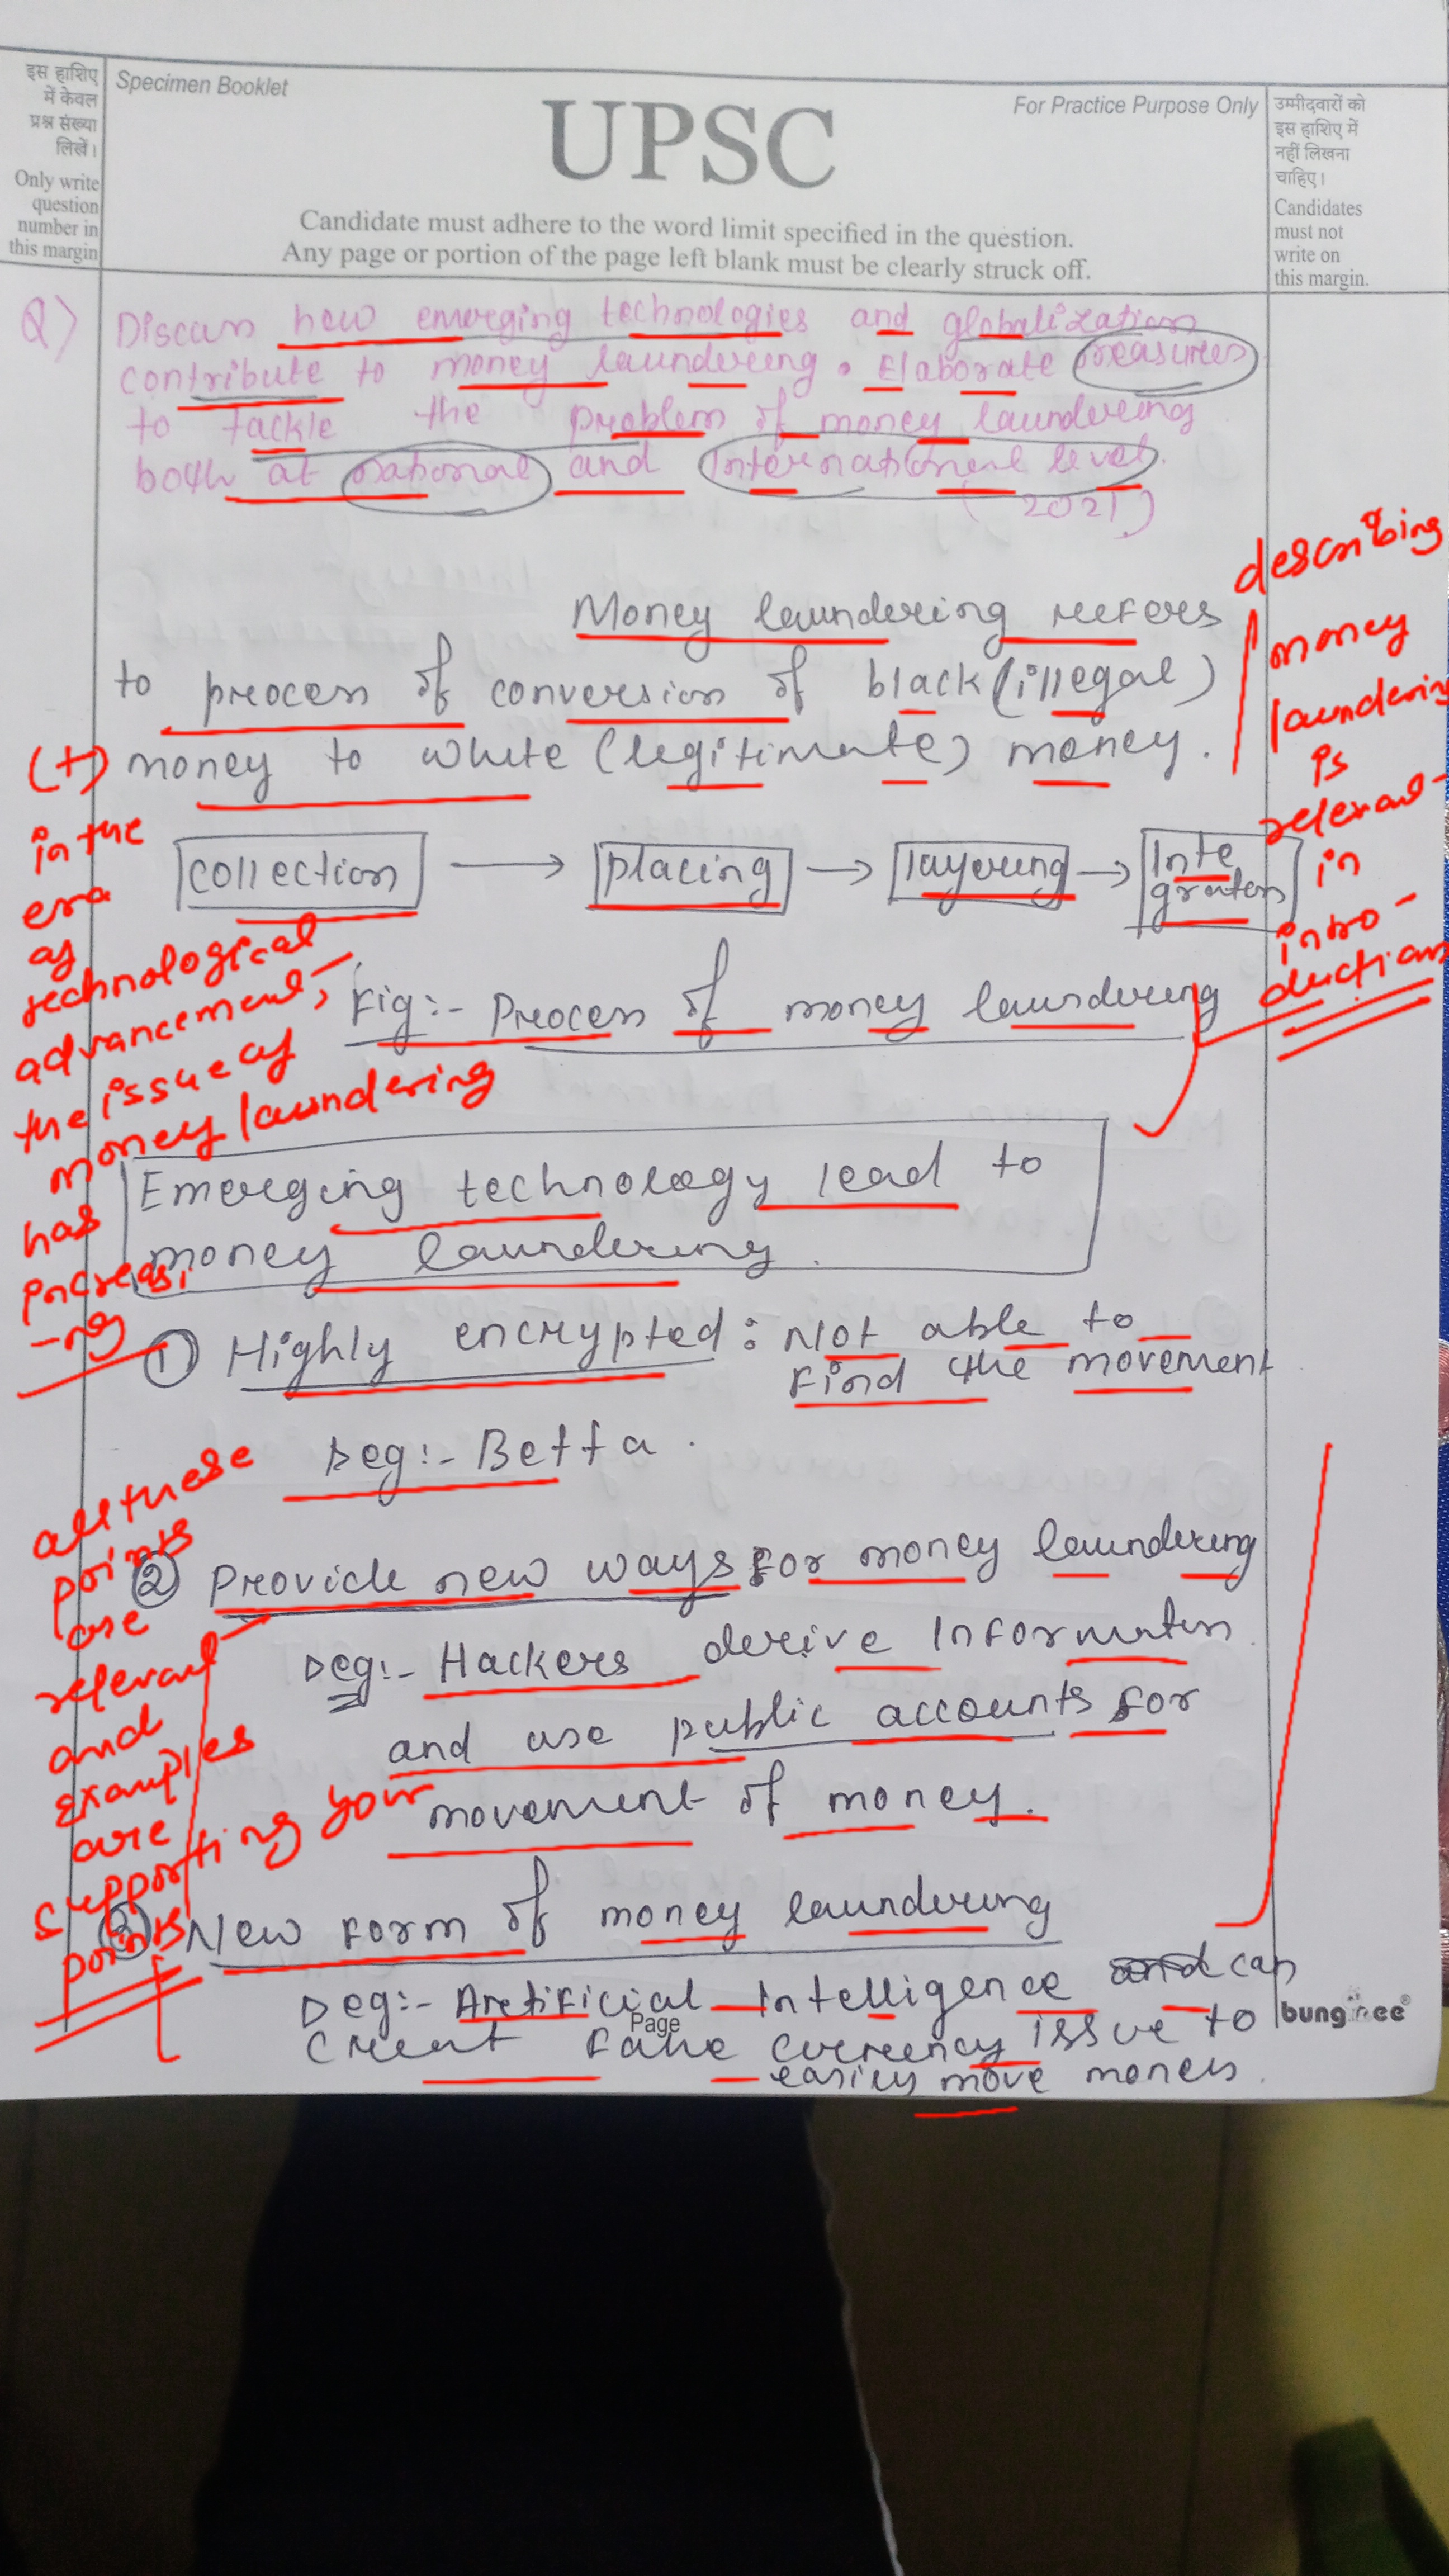 इस हाशिए
में केवल
प्रश्न संख्या
लिखें।
Only write
question
number in
this margin
Specimen Booklet
UPSC
For Practice Purpose Only
Candidate must adhere to the word limit specified in the question.
Any page or portion of the page left blank must be clearly struck off.
उम्मीदवारों को
इस हाशिए में
नहीं लिखना
चाहिए।
Candidates
must not
write on
this margin.
Q) Discuss how emerging technologies and globalization
contribute to money laundering. Elaborate measures
to tackle the problem of money laundering
both at national and International level.
(2021)
Money laundering refers
to process of conversion of black (illegal)
money to white (legitimate) money.
describing
money
laundering
is
relevant
in
intro-
duction
collection → placing → layering → Inte
gration
Fig:- Process of money laundering
(+)
in the
era
of
technological
advancement,
the issue of
money laundering
has
increas-
ing
Emerging technology lead to
money laundering.
① Highly encrypted: Not able to
find the movement
Deg:- Betta.
② Provide new ways for money laundering
Deg:- Hackers derive Information
and use public accounts for
movement of money.
all these
points
are
relevant
and
examples
are
supporting your
points
③ New form of money laundering
Deg:- Artificial Intelligence can
Creat Fake currency issue to
easily move money.
Page
bungree